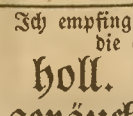 Ich empfing
die
holl.